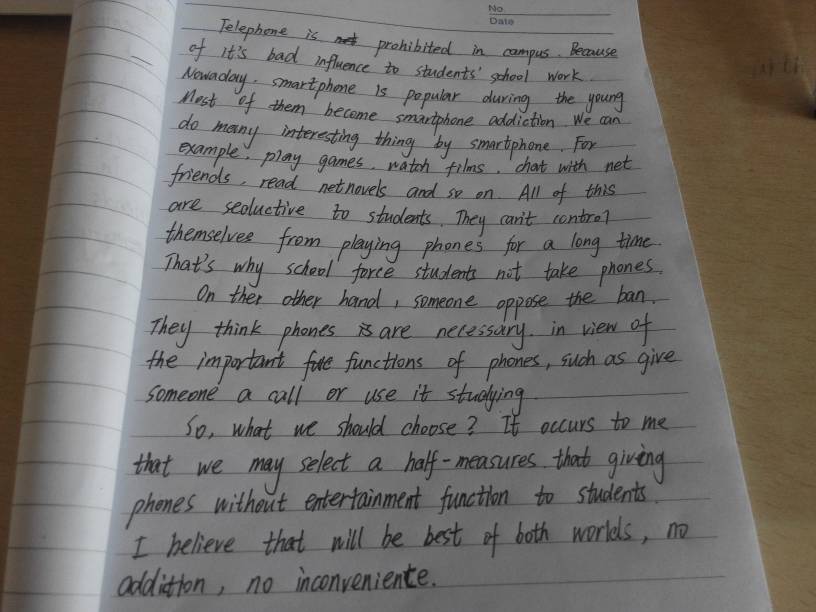 No.
Date
Telephone is not prohibited in campus. Because
of it's bad influence to students' school work.
Nowaday, smartphone is popular during the young
Most of them become smartphone addiction. We can
do many interesting thing by smartphone. For
example, play games, watch films, chat with net
friends, read netnovels and so on. All of this
are seductive to students. They can't control
themselves from playing phones for a long time.
That's why school force students not take phones.
On ther other hand, someone oppose the ban.
They think phones is are necessary. in view of
the important fuc functions of phones, such as give
someone a call or use it studying
So, what we should choose? It occurs to me
that we may select a half-measures that giving
phones without entertainment function to students.
I believe that will be best of both worlds, no
addittion, no inconveniente.